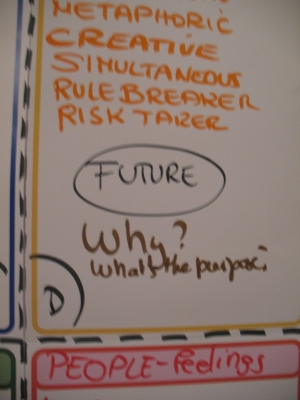 METAPHORIC
CREATIVE
SIMULTANEOUS
RULE BREAKER
RISK TAKER
FUTURE
Why?
What's the purpose.
D
PEOPLE-feelings